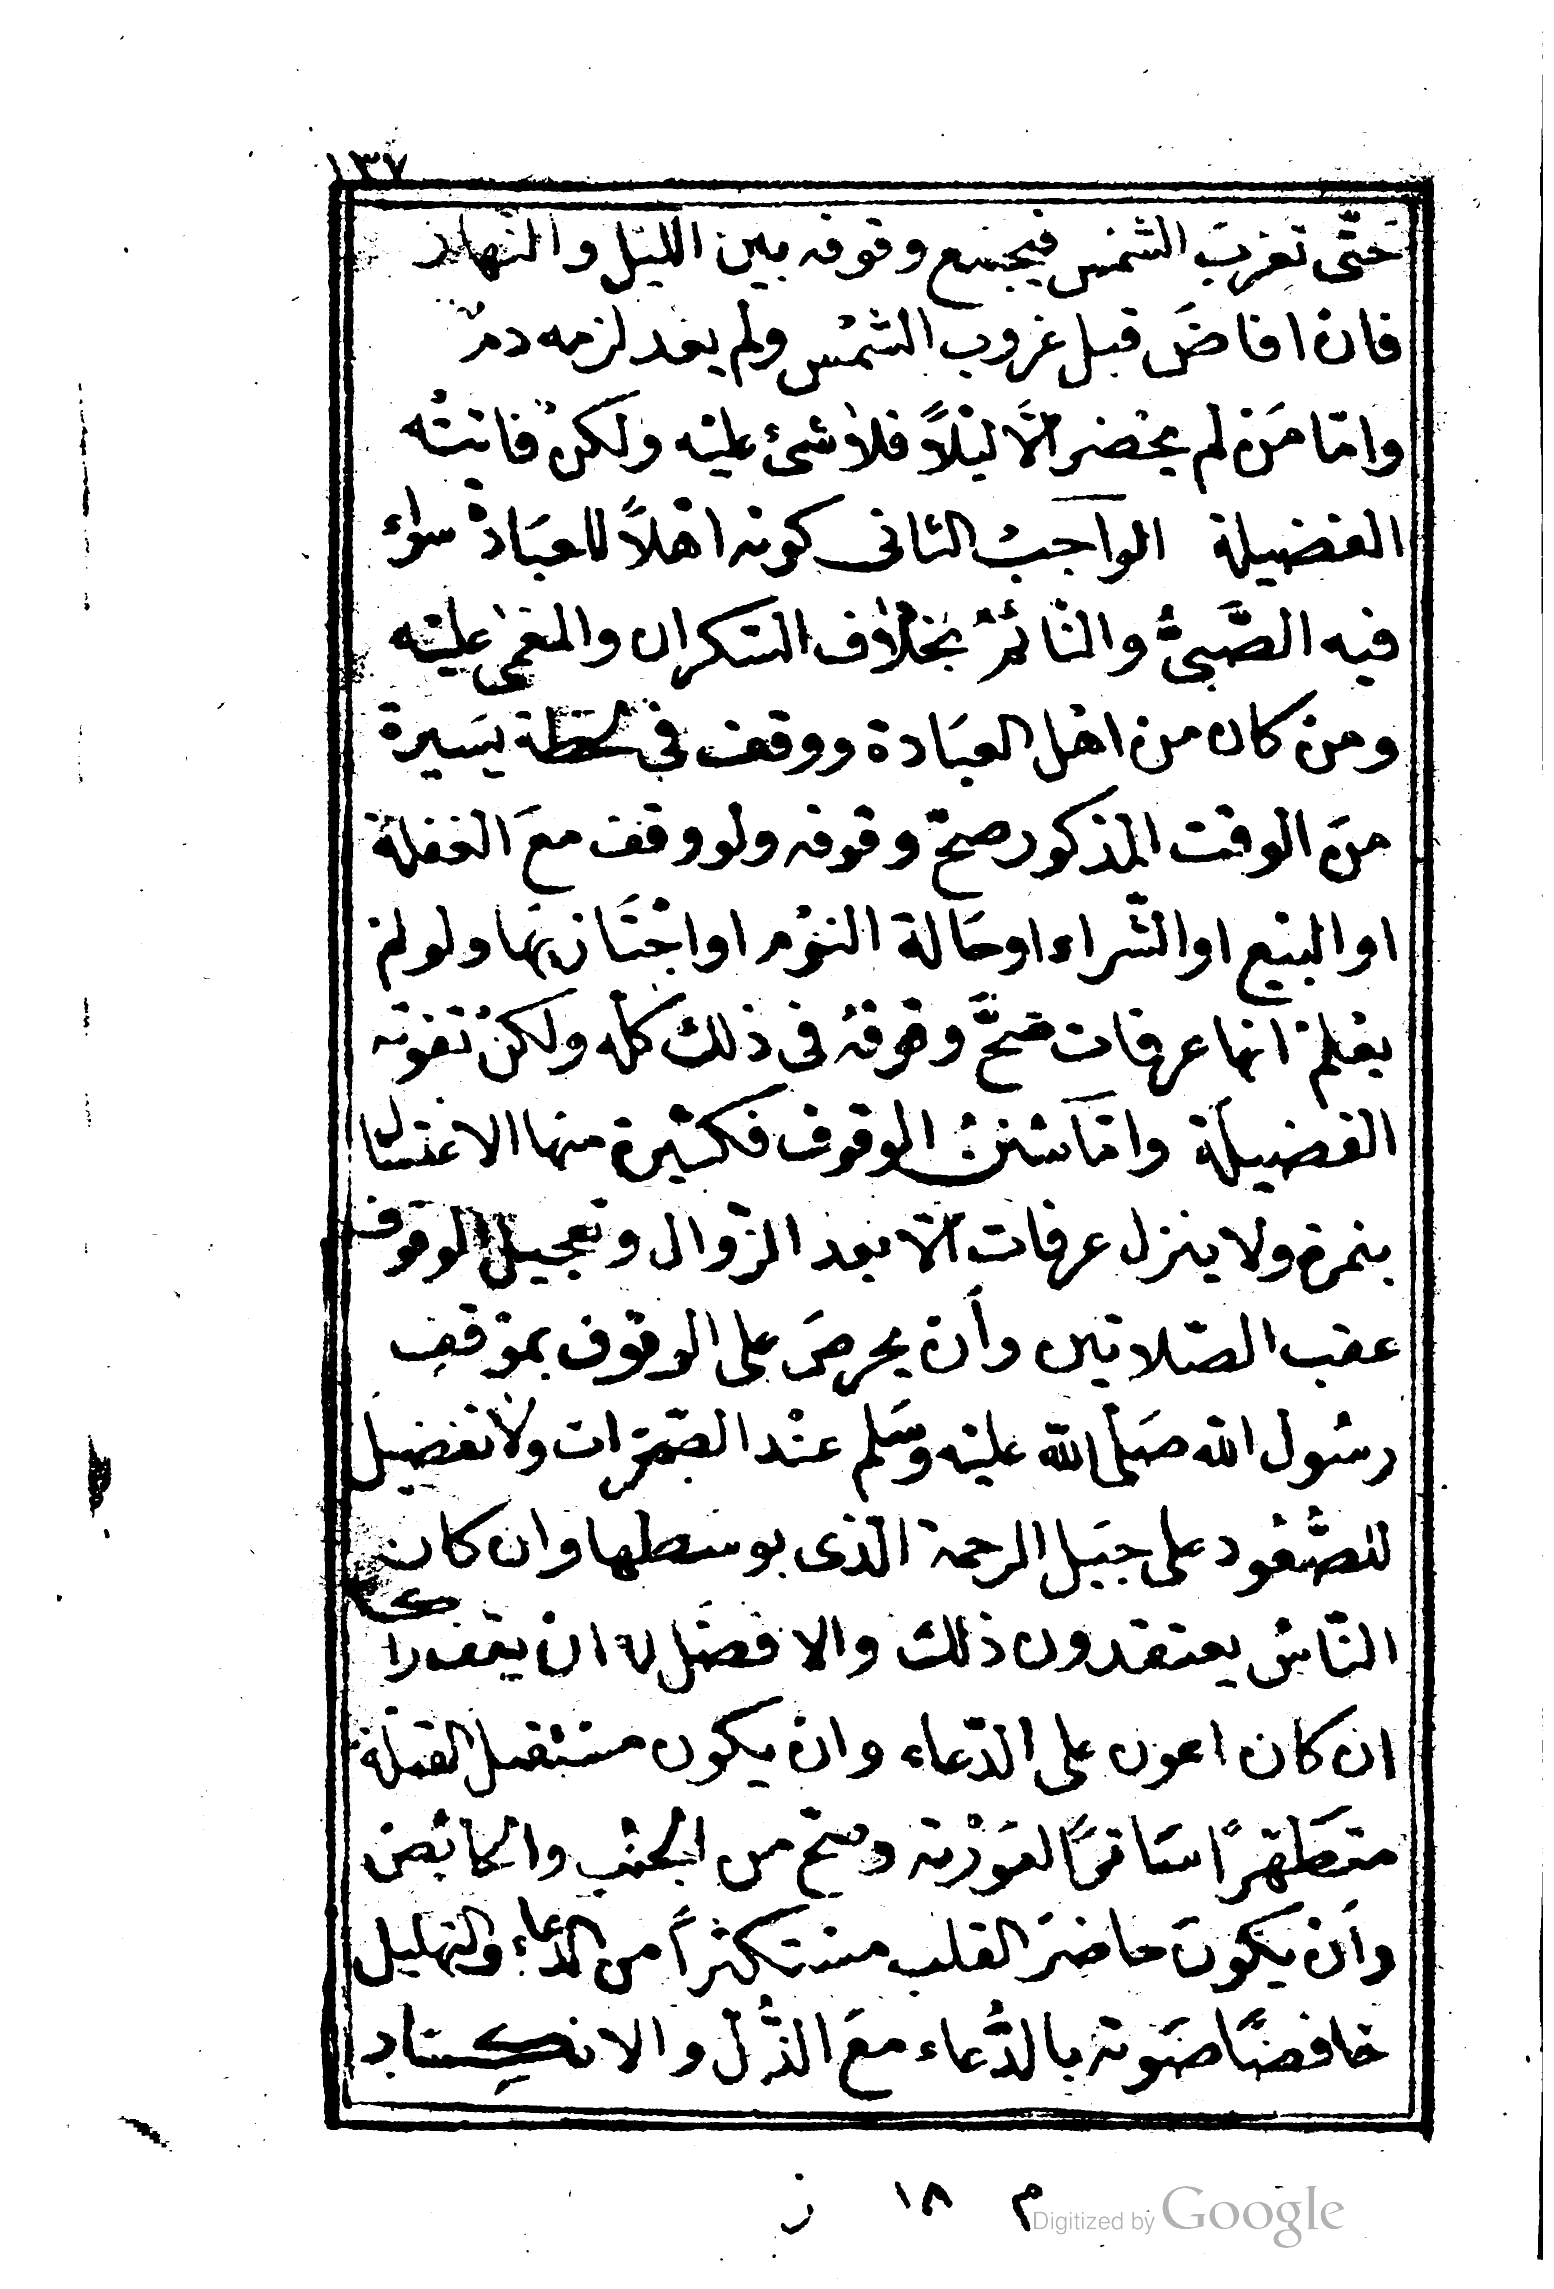 ١٣٧
حَتّى تغربَ الشمس فيجمع وقوفه بين الليل والنهار
فان افاضَ قبل غروب الشمْس ولم يعد لزمه دمٌ
وامّا مَنْ لم يحْضر الّا ليْلاً فلا شئ عليْه ولكنْ فاتتْه
الفضيلة الواجبُ الثانى كونه اهْلاً للعبَادة سواءٌ
فيه الصَّبىُّ والنائمُ بخلاف السّكران والمغمى عليْه
ومن كان من اهْل العبَادة ووقف فى لحظة يسَيرة
منَ الوقت المذكور صحّ وقوفه ولو وقف معَ الغفلة
او البيْع او الشراء او حَالة النوْم او اجْتَاز بهَا ولو لمْ
يعْلمْ انها عرفات صَحَّ وقوفهُ فى ذلك كلّه ولكنْ تفوته
الفضيلة وامّا سُننُ الوقوف فكثيرة منها الاغتسال
بنمرة ولا ينزل عرفات الّا بعد الزّوال وتعجيل الوقوف
عقب الصّلاتين وأن يحرصَ على الوقوف بموْقفِ
رسُول الله صَلّى الله عليْه وسَلم عنْد الصّخرات ولا تفضيل
للصُّعُود على جبَل الرحمة الذى بوسَطها وان كان
النّاسُ يعتقدون ذلك والافضَل له ان يقف راكبا
ان كان اعون على الدّعاء وان يكون مستقبل القبلة
متطَهّرًا سَاترًا لعَوْرته وصحّ من الجنُب والحائض
وأن يكونَ حاضرَ القلب مستكثراً من الدعاء والتهليل
خافضًا صَوته بالدُّعاء معَ الذُّل والانكِسَار
م ١٨ ز
Digitized by Google